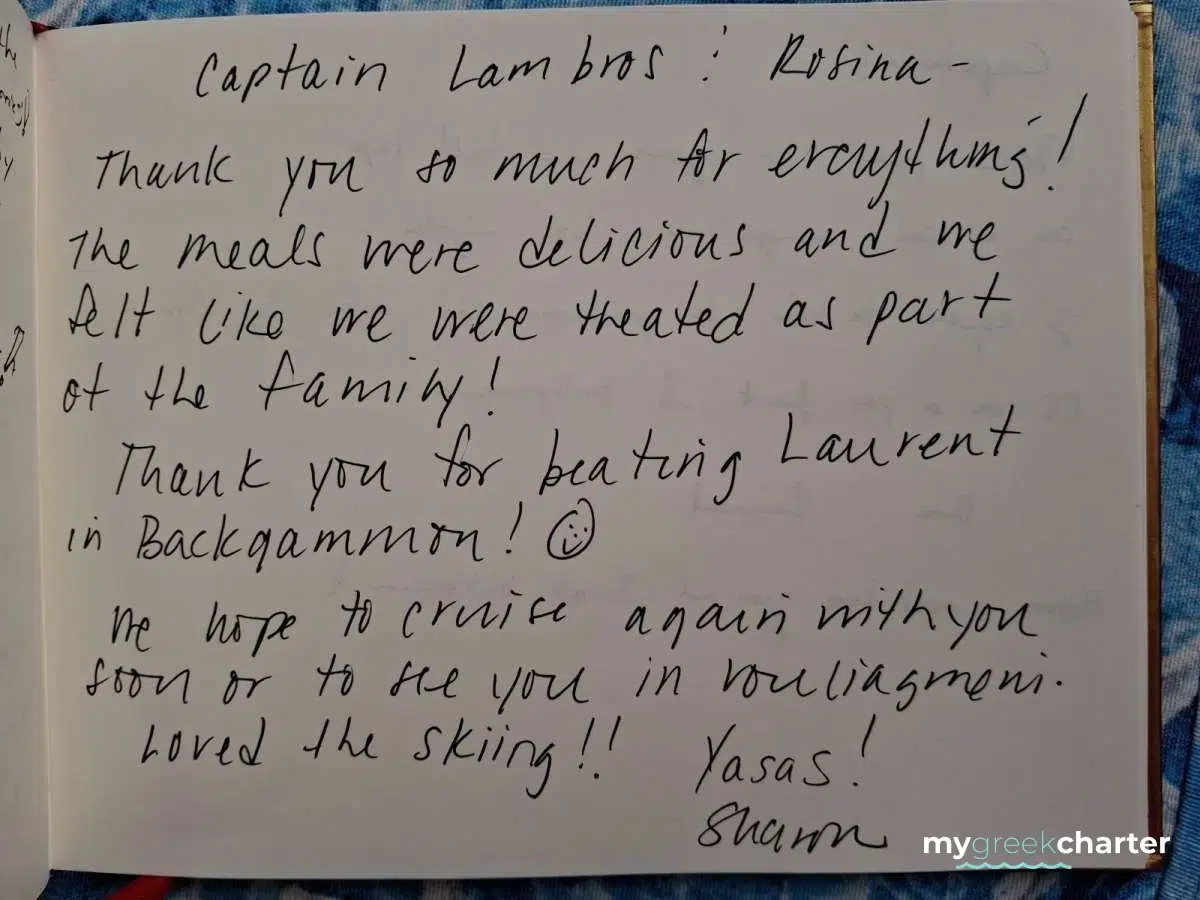 Captain Lambros : Rosina -
Thank you so much for ercuything!
The meals were delicious and we
felt like we were theated as part
of the family!
Thank you for beating Laurent
in Backgammon! ☺
We hope to cruise again with you
soon or to see you in vouliagmeni.
Loved the skiing!!
Yasas!
Sharon
mygreekcharter